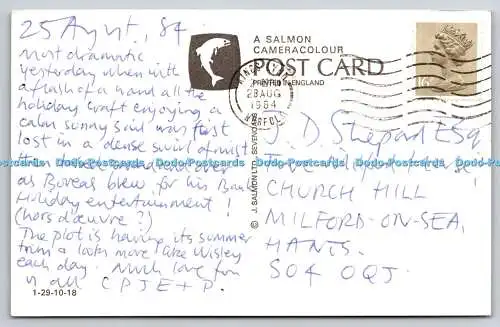 25 August, 84
Most dramatic
yesterday when with
a flash of a hand all the
holiday craft enjoying a
calm sunny sail was first
lost in a dense swirl of mist
then
as Boreas blew for his Bank
Holiday entertainment!
(hors d'œuvre?)
The plot is having its summer
trim & looks more like Wisley
each day. Much love from
us all C P J E + P.
1-29-10-18
A SALMON
CAMERACOLOUR
POST CARD
PRINTED IN ENGLAND
28 AUG
1984
NORFOLK
16
© J. SALMON LTD., SEVENOAKS
J. D. Shepard Esq
CHURCH HILL
MILFORD-ON-SEA,
HANTS.
SO4 0QJ.
Dodo-Postcards Dodo-Postcards Dodo-Postcards Dodo-Postcards Dodo-Postcards Dodo-Postcards